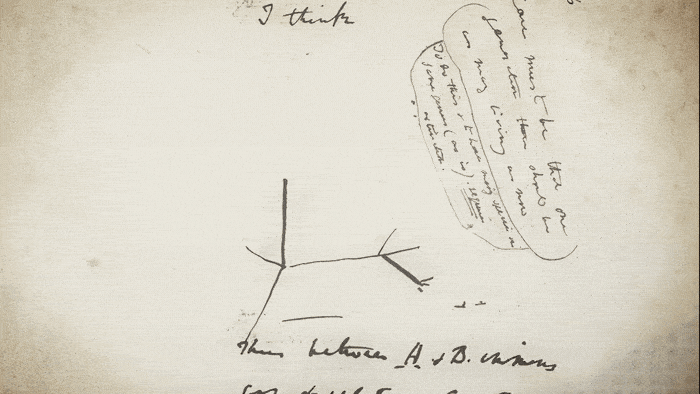 I think
case must be that one
generation then should be
as many living as now
To do this & to have many species in
same genus (as is). requires
extinction.
Thus between A & B. immens